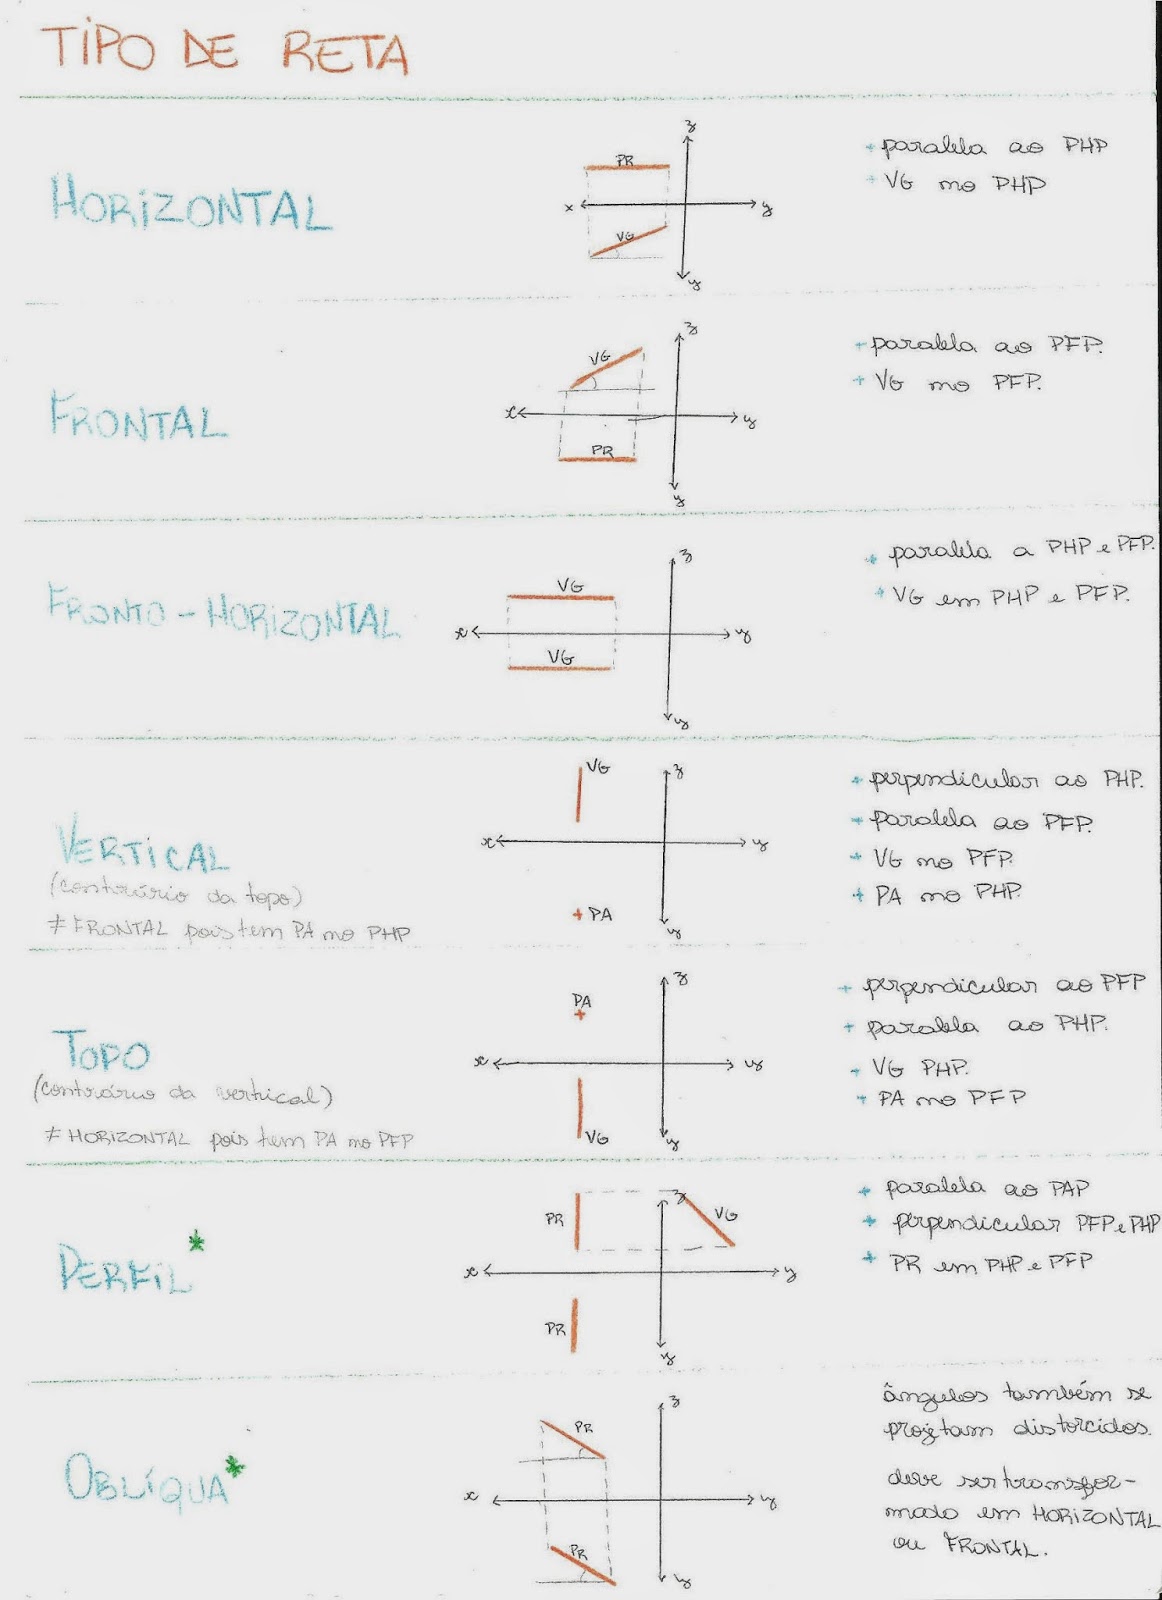 TIPO DE RETA
HORIZONTAL
z
PR
x
y
VG
y
+ paralela ao PHP
+ VG no PHP
FRONTAL
z
VG
x
y
PR
y
+ paralela ao PFP.
+ VG no PFP.
FRONTO - HORIZONTAL
z
VG
x
y
VG
y
+ paralela a PHP e PFP.
+ VG em PHP e PFP.
VERTICAL
(contrário da topo)
≠ FRONTAL pois tem PA no PHP
VG
z
x
y
+ PA
y
+ perpendicular ao PHP.
+ paralela ao PFP.
+ VG no PFP.
+ PA no PHP.
TOPO
(contrário da vertical)
≠ HORIZONTAL pois tem PA no PFP
z
PA
+
x
y
VG
y
+ perpendicular ao PFP
+ paralela ao PHP.
+ VG PHP.
+ PA no PFP
PERFIL*
z
PR
VG
x
y
PR
y
+ paralela ao PAP
+ perpendicular PFP e PHP
+ PR em PHP e PFP
OBLÍQUA*
z
PR
x
y
PR
y
ângulos também se
projetam distorcidos.
deve ser transfor-
mado em HORIZONTAL
ou FRONTAL.